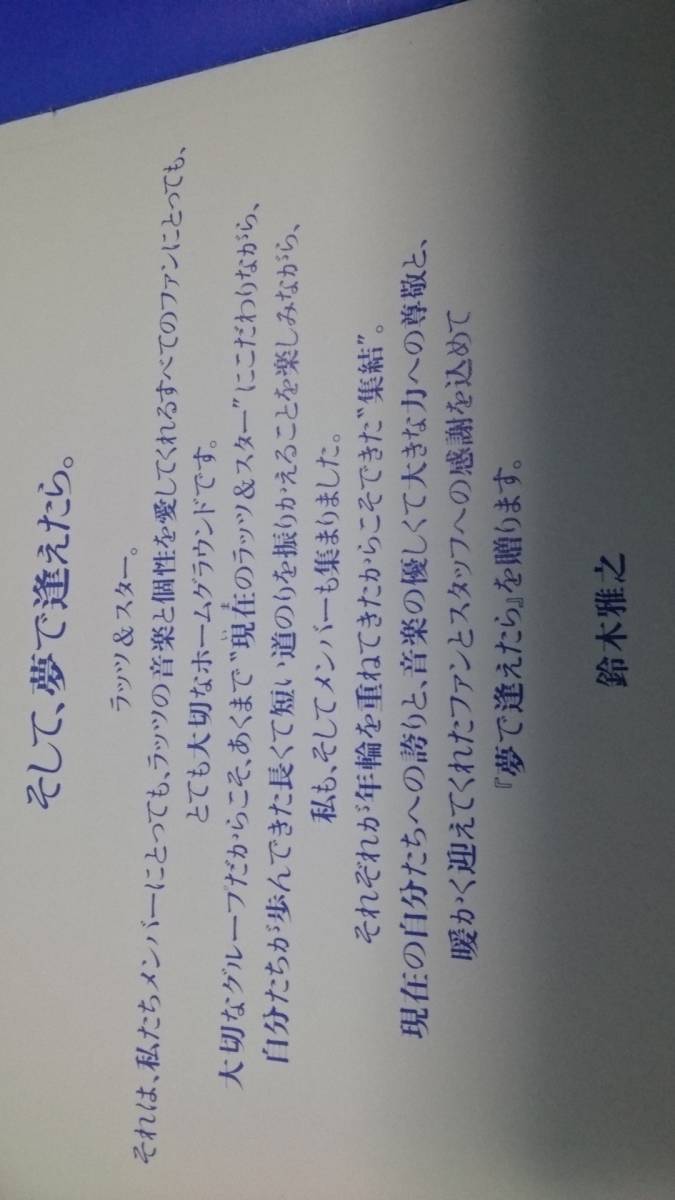 そして、夢で逢えたら。
ラッツ&スター。
それは、私たちメンバーにとっても、ラッツの音楽と個性を愛してくれるすべてのファンにとっても、
とても大切なホームグラウンドです。
大切なグループだからこそ、あくまで“現在のラッツ&スター”にこだわりながら、
自分たちが歩んできた長くて短い道のりを振りかえることを楽しみながら、
私も、そしてメンバーも集まりました。
それぞれが年輪を重ねてきたからこそできた“集結”。
現在の自分たちへの誇りと、音楽の優しくて大きな力への尊敬と、
暖かく迎えてくれたファンとスタッフへの感謝を込めて
『夢で逢えたら』を贈ります。
鈴木雅之